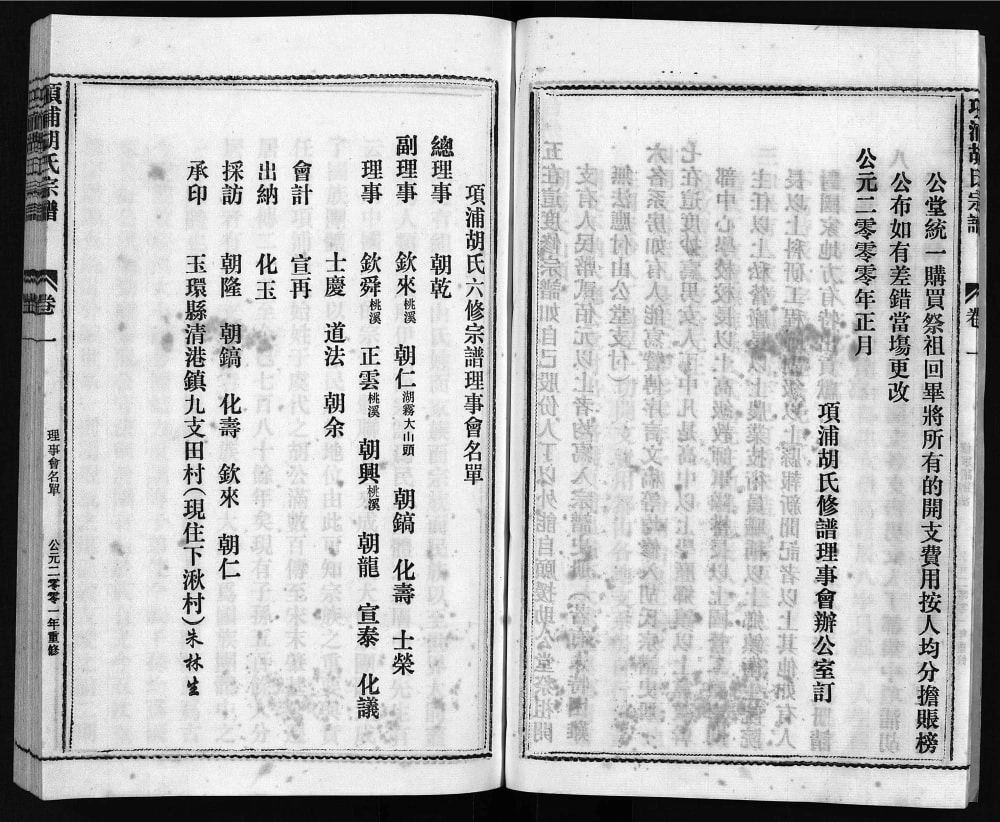 項浦胡氏宗譜
卷一
八
公堂統一購買祭祖回畢將所有的開支費用按人均分擔賬榜
公布如有差錯當塲更改
項浦胡氏修譜理事會辦公室訂
公元二零零零年正月
項浦胡氏六修宗譜理事會名單
總理事 朝乾
副理事 欽來桃溪 朝仁湖霧大山頭 朝鎬 化壽 士榮
理事 欽舜桃溪 正雲桃溪 朝興桃溪 朝龍 宣泰 化議
士慶 道法 朝余
會計 宣再
出納 化玉
採訪 朝隆 朝鎬 化壽 欽來 朝仁
承印 玉環縣清港鎮九支田村（現住下湫村）朱林生
項浦胡氏宗譜
卷一
理事會名單
公元二零零一年重修